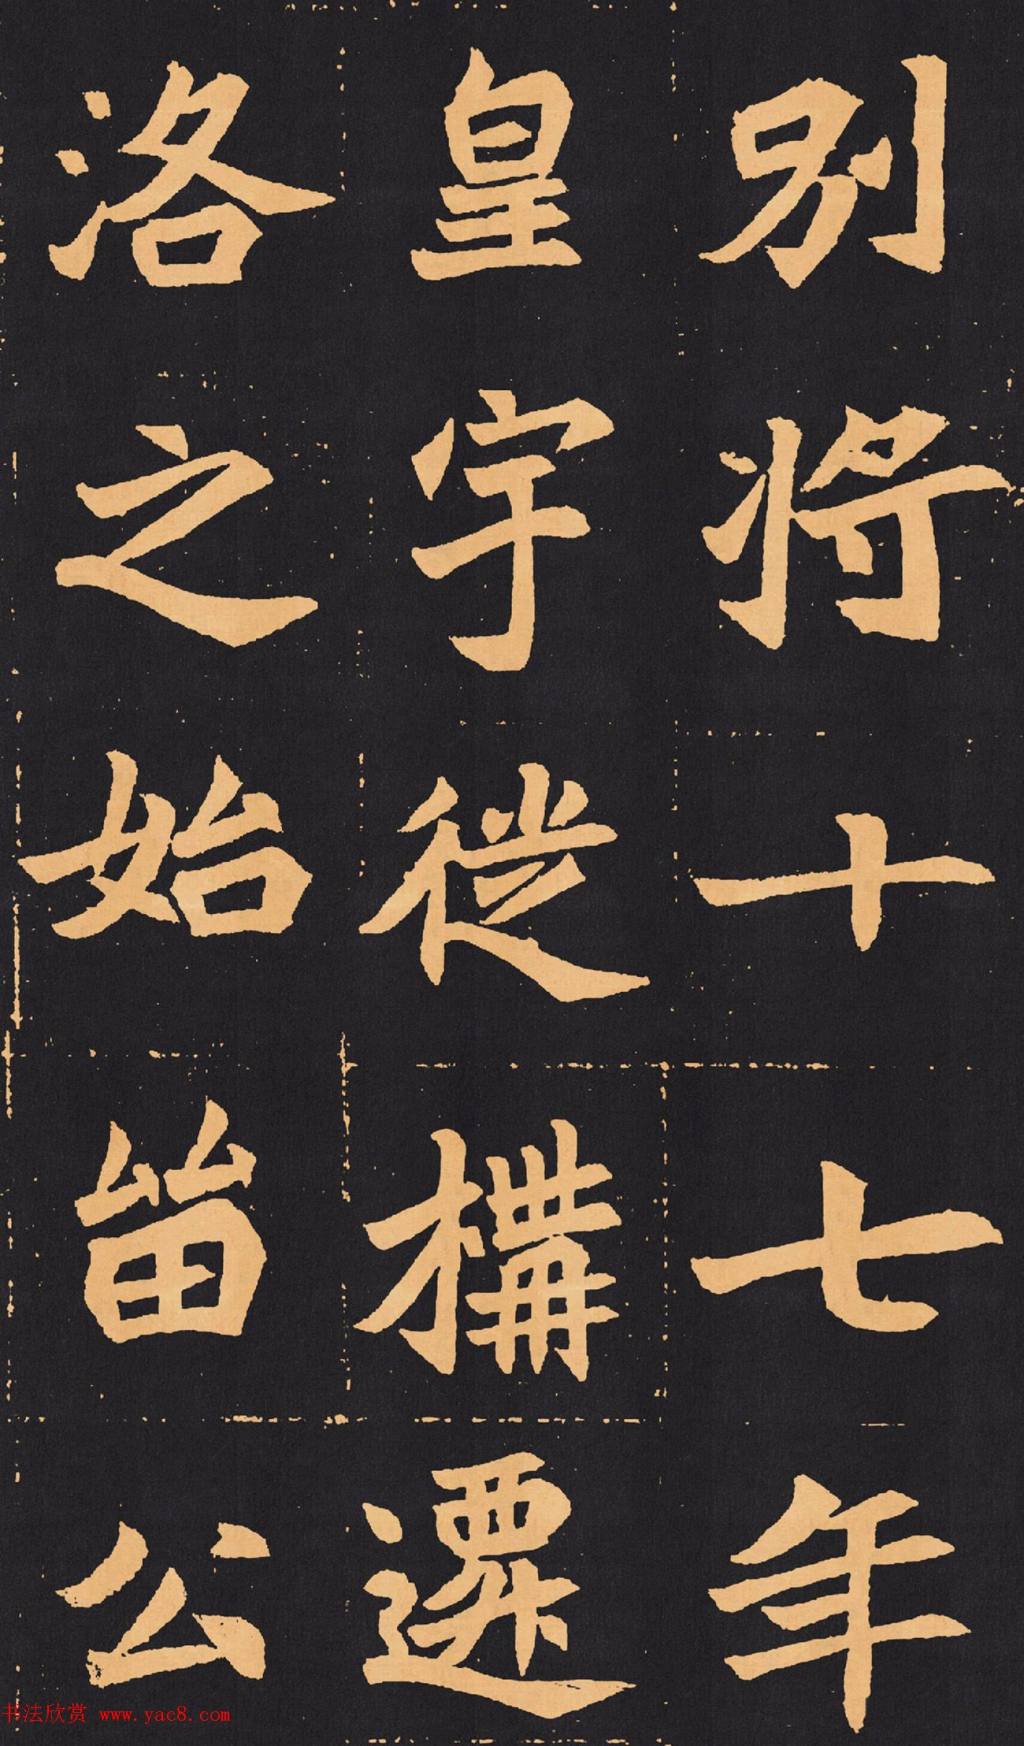 别将十七年
皇宇徙構遷
洛之始畱公
书法欣赏 www.yac8.com